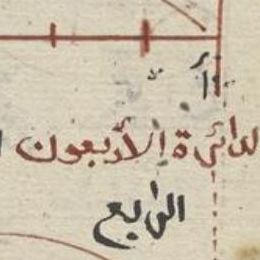 أ
الدائرة الأربعون
الرابع